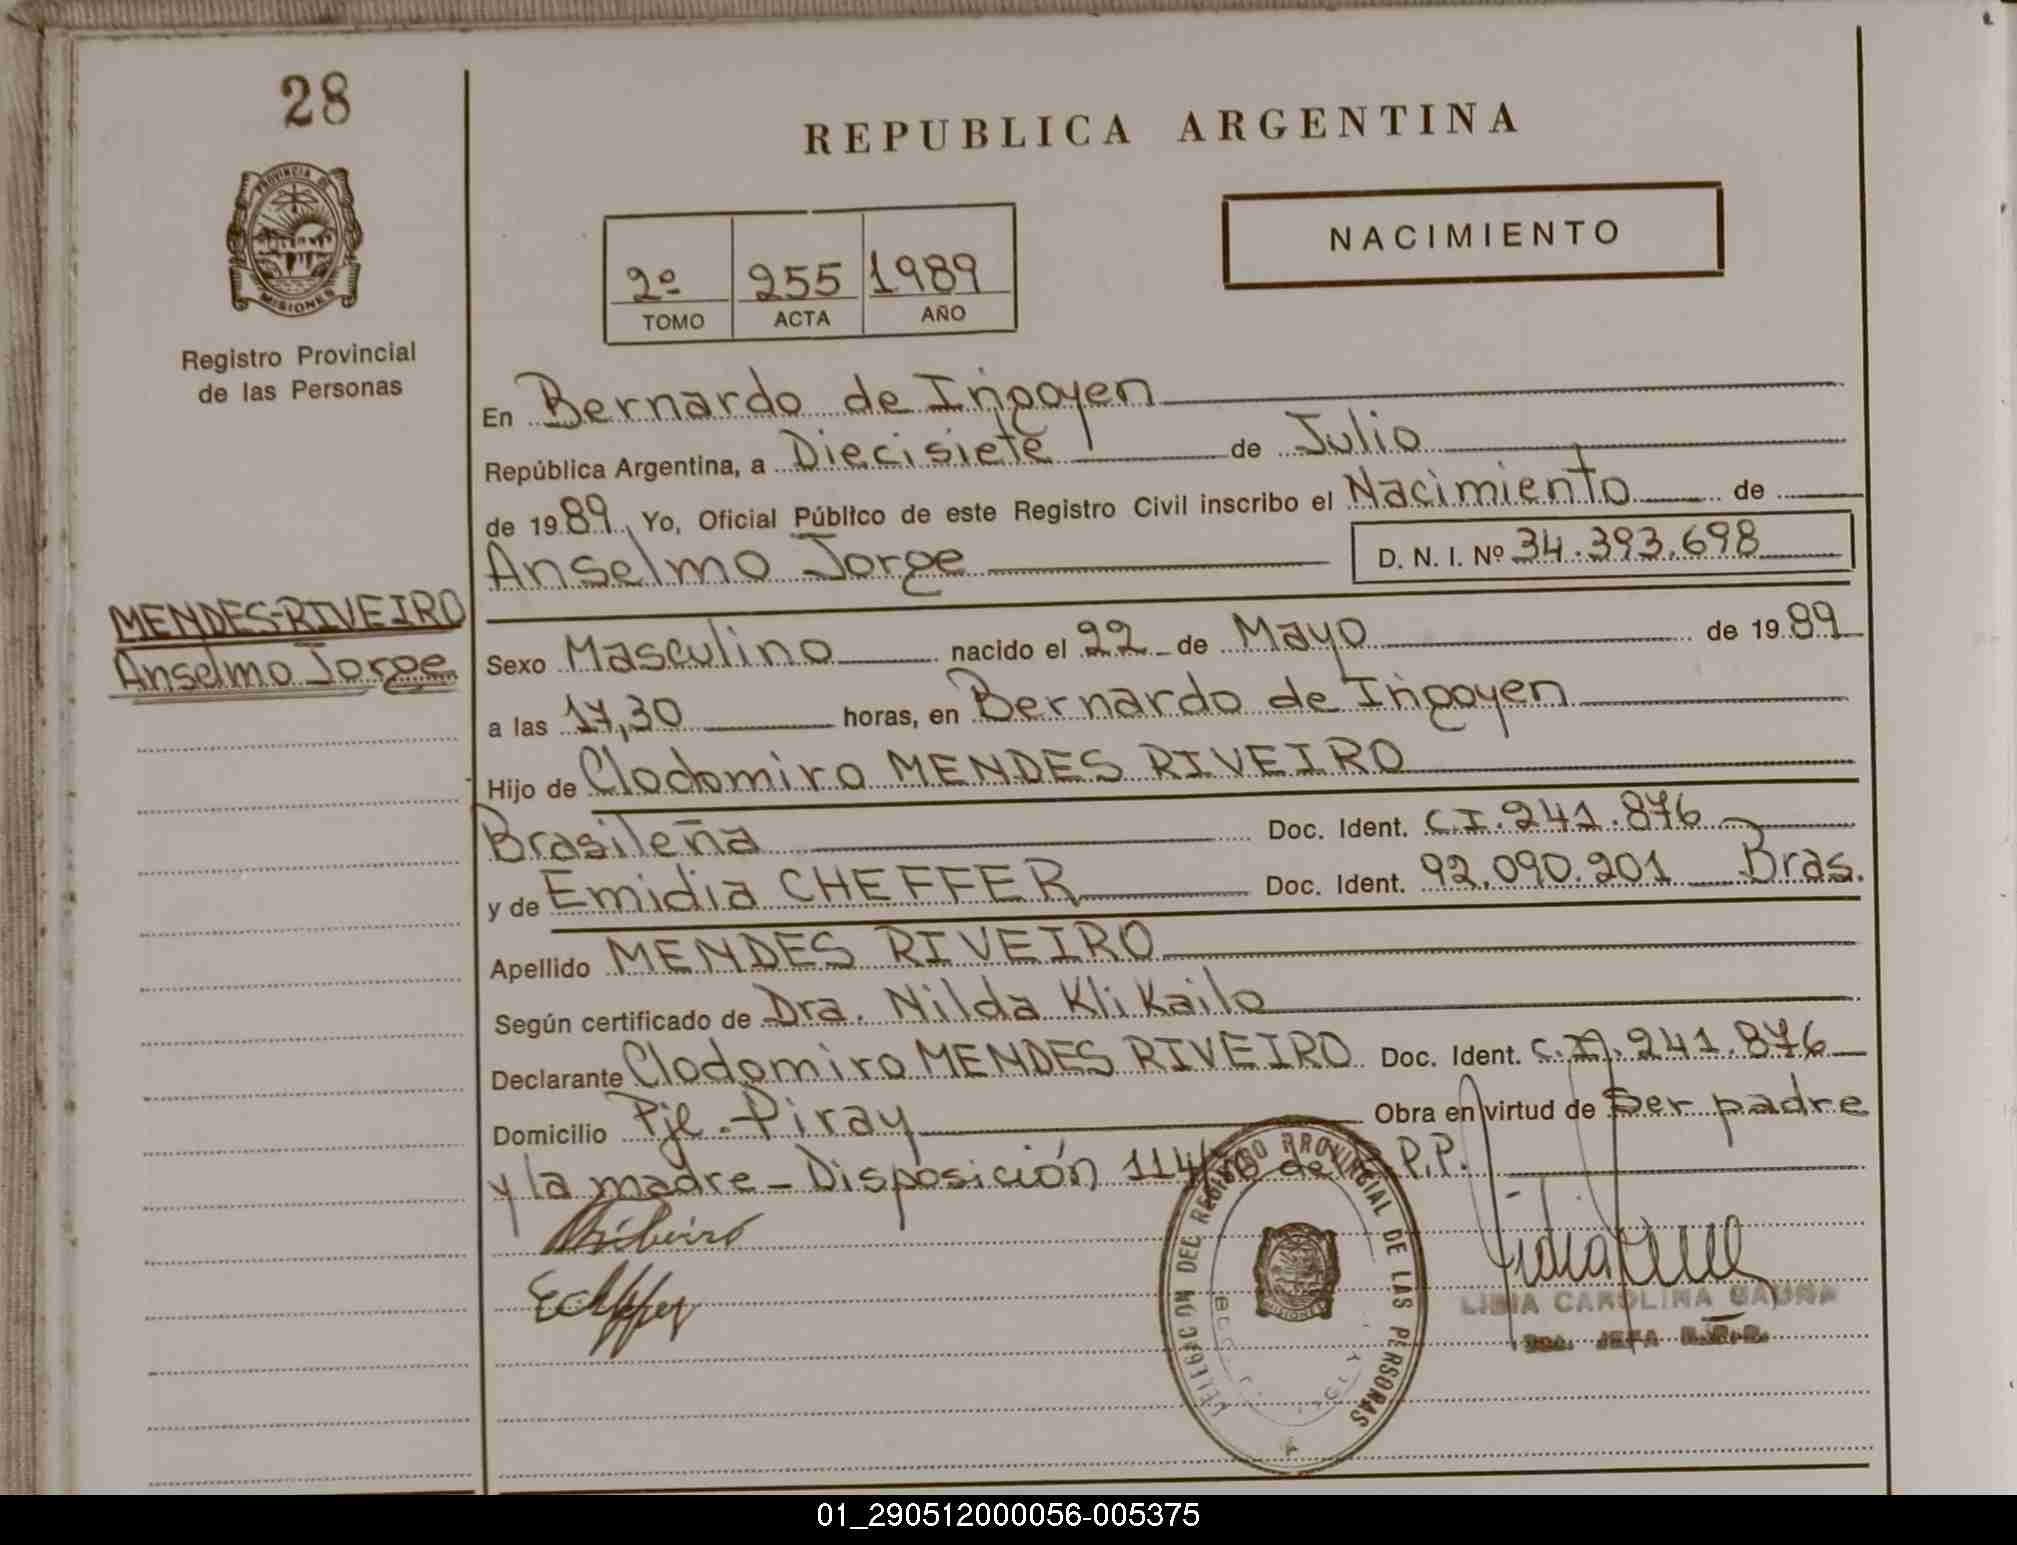 28
PROVINCIA DE
MISIONES
Registro Provincial
de las Personas
MENDES-RIVEIRO
Anselmo Jorge
REPUBLICA ARGENTINA
NACIMIENTO
2º 255 1989
TOMO ACTA AÑO
En Bernardo de Irigoyen
República Argentina, a Diecisiete de Julio
de 1989, Yo, Oficial Público de este Registro Civil inscribo el Nacimiento de
Anselmo Jorge D. N. I. Nº 34.393.698
Sexo Masculino nacido el 22 de Mayo de 1989
a las 17,30 horas, en Bernardo de Irigoyen
Hijo de Clodomiro MENDES RIVEIRO
Brasileña Doc. Ident. C.I. 241.876
y de Emidia CHEFFER Doc. Ident. 92.090.201 Bras.
Apellido MENDES RIVEIRO
Según certificado de Dra. Nilda Kli Kailo
Declarante Clodomiro MENDES RIVEIRO Doc. Ident. C.I. 241.876
Domicilio Pje. Piray Obra en virtud de Ser padre
y la madre - Disposición 114/ de P.P.
Ribeiro
DELEGACION DEL REGISTRO PROVINCIAL DE LAS PERSONAS
MISIONES
LIDIA CAROLINA
JEFA
01_290512000056-005375